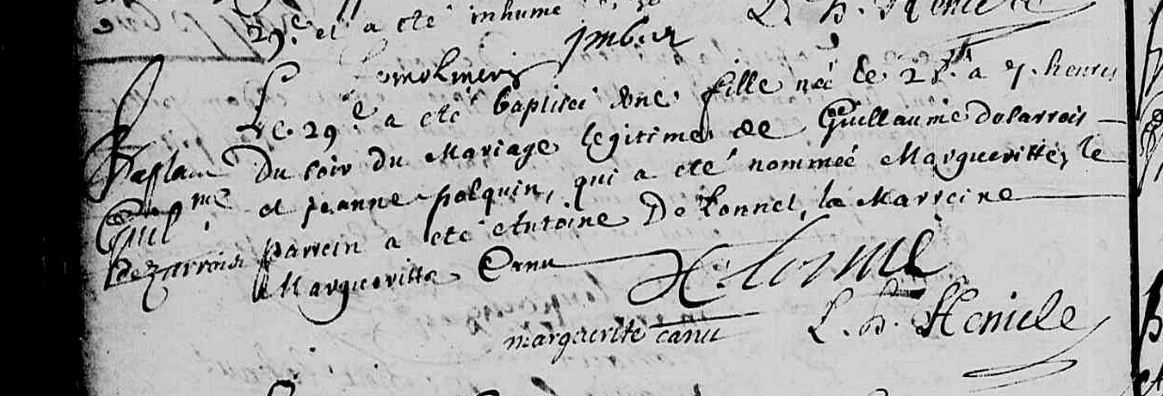 29.e et a été inhumé
L. H. Heniele
Le. 29.e a été baptiséé Une fille néé le 28.e a 7. heures
du soir du Mariage Legitime de Guillaume Delarrois
et jeanne palquin, qui a eté nomméé Marguerittes le
parrein a eté Antoine De Lonnel, la Marreine
Margueritte Canu
Baptême
Guil
me
dezarrois
Delorme
marguerite canu
L. H. Heniele